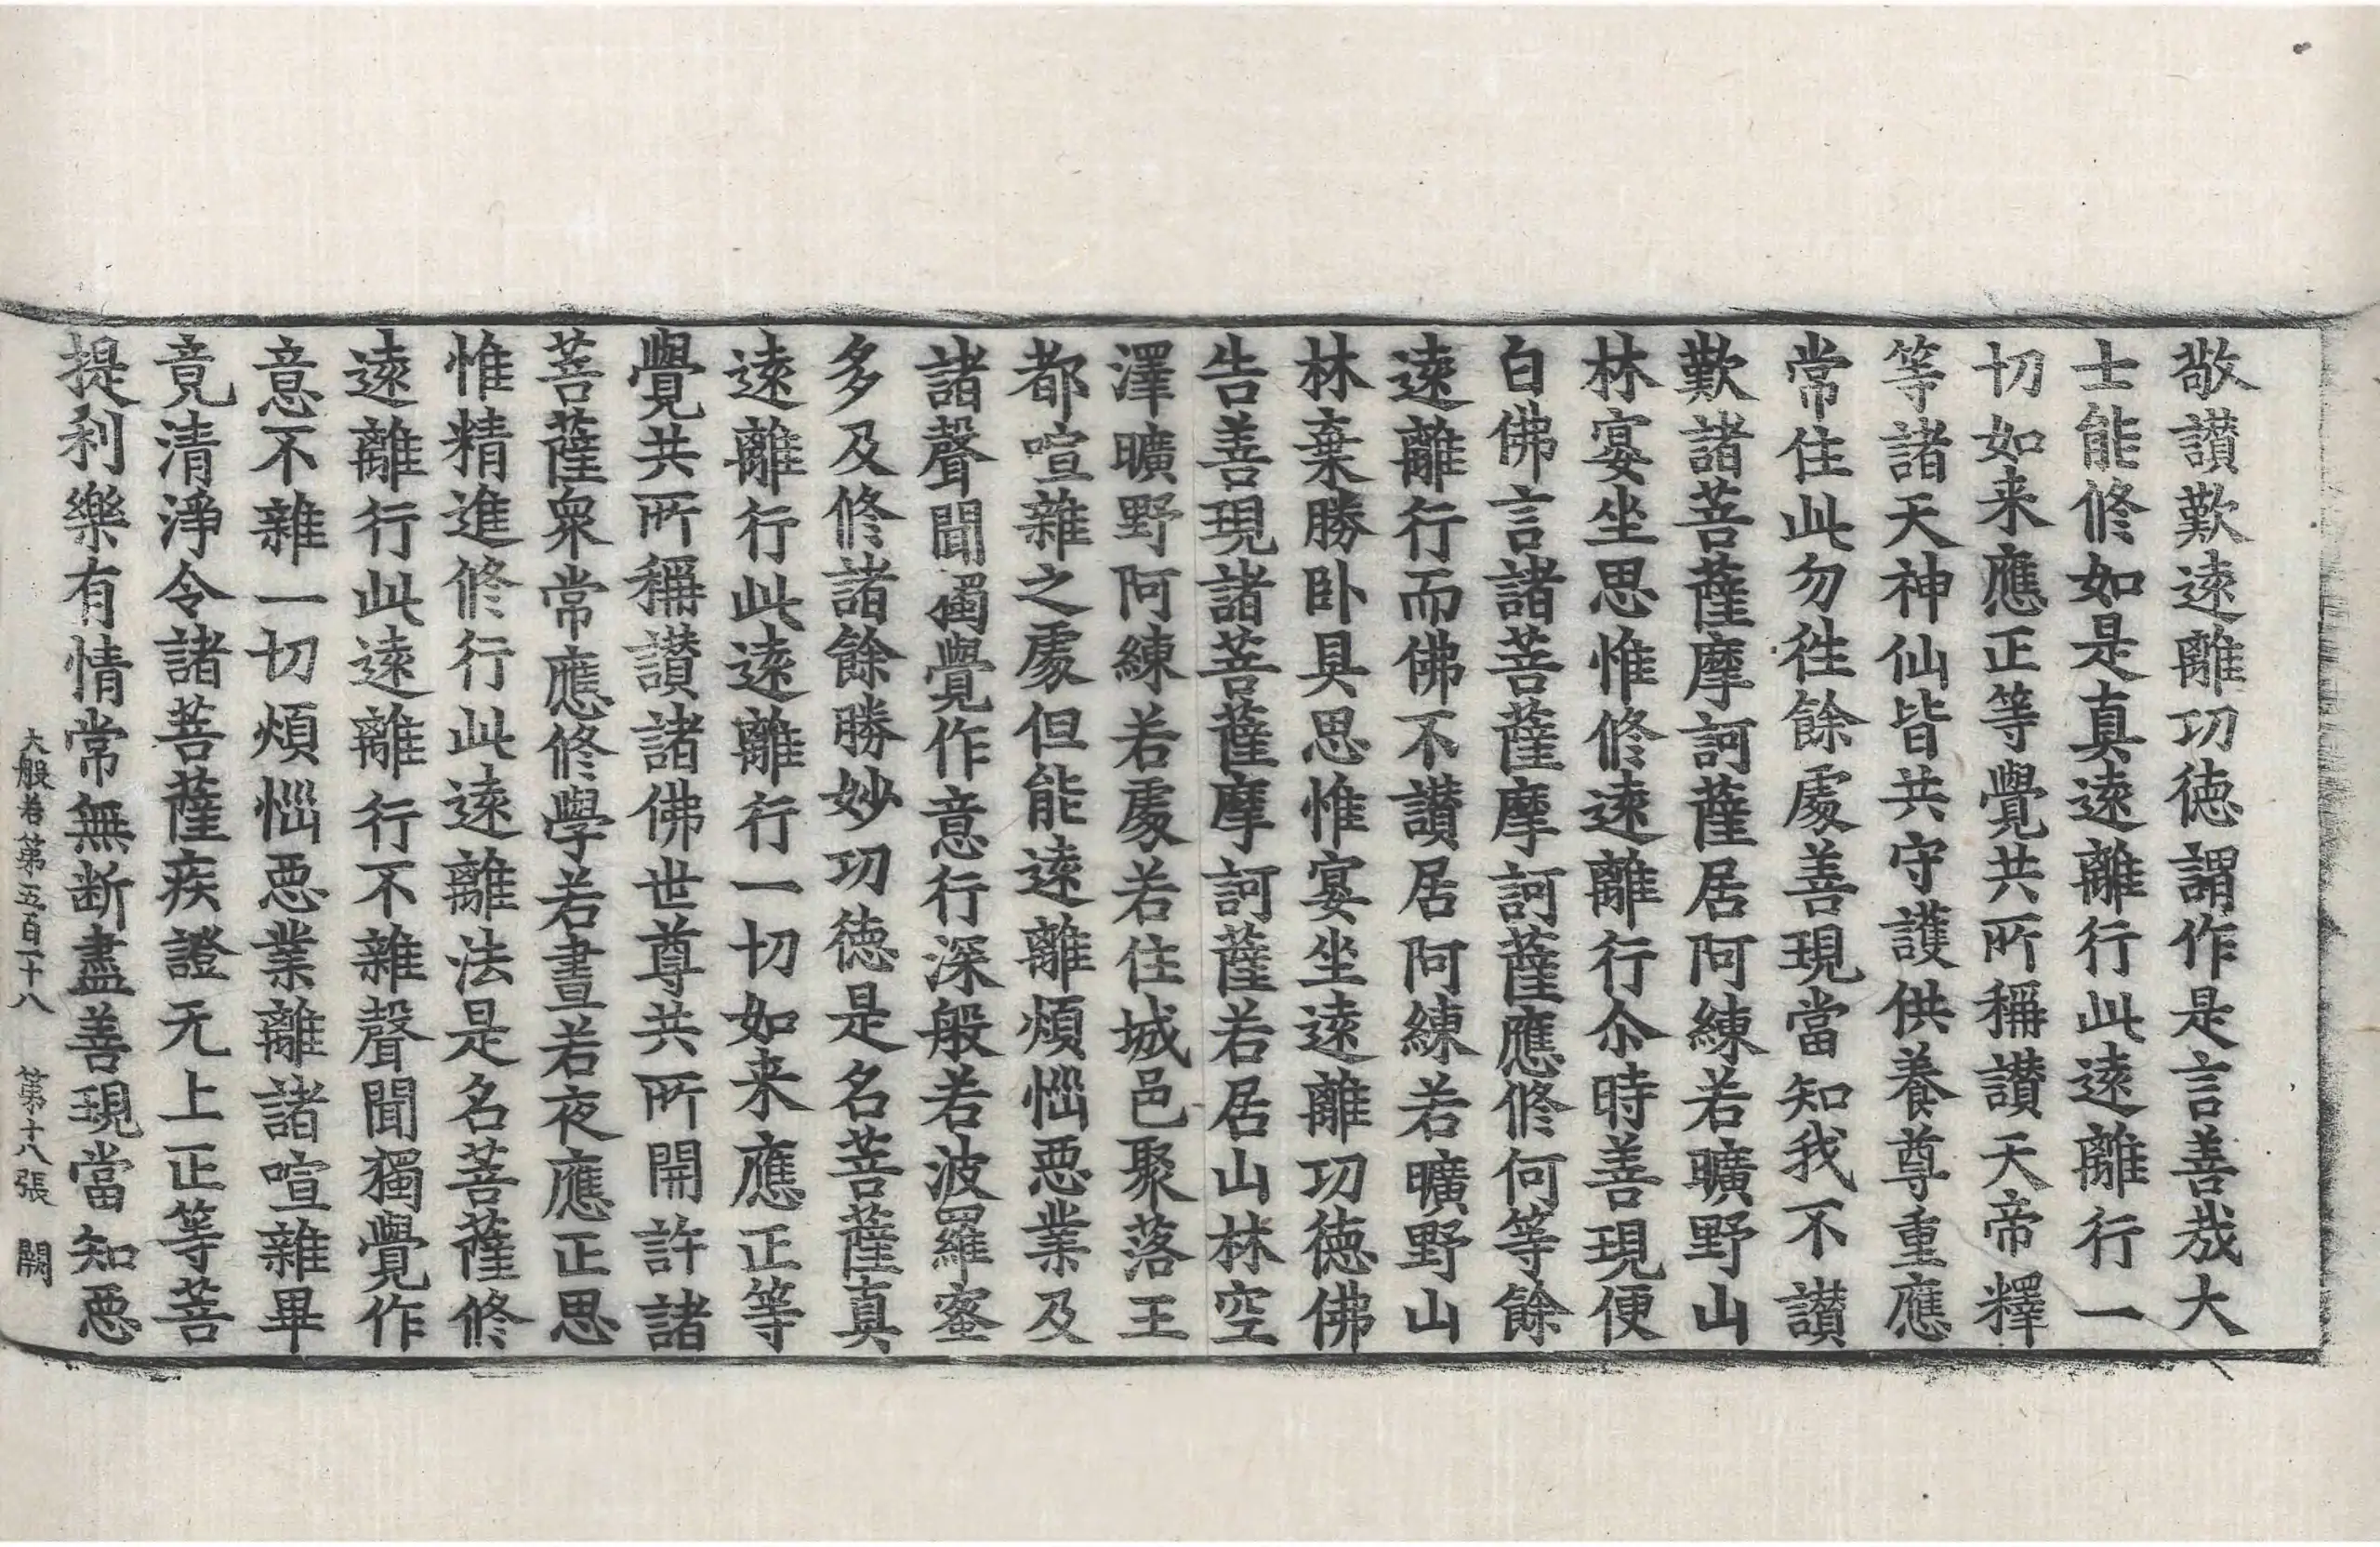 敬讃歎遠離功徳謂作是言善哉大
士能修如是真遠離行此遠離行一
切如来應正等覺共所稱讃天帝釋
等諸天神仙皆共守護供養尊重應
常住此勿徃餘處善現當知我不讃
歎諸菩薩摩訶薩居阿練若曠野山
林宴坐思惟修遠離行尒時善現便
白佛言諸菩薩摩訶薩應修何等餘
遠離行而佛不讃居阿練若曠野山
林棄勝卧具思惟宴坐遠離功徳佛
告善現諸菩薩摩訶薩若居山林空
澤曠野阿練若處若住城邑聚落王
都喧雜之處但能遠離煩惱惡業及
諸聲聞獨覺作意行深般若波羅蜜
多及修諸餘勝妙功徳是名菩薩真
遠離行此遠離行一切如来應正等
覺共所稱讃諸佛世尊共所開許諸
菩薩衆常應修學若晝若夜應正思
惟精進修行此遠離法是名菩薩修
遠離行此遠離行不雜聲聞獨覺作
意不雜一切煩惱惡業離諸喧雜畢
竟清淨令諸菩薩疾證无上正等菩
提利樂有情常無断盡善現當知惡
大般若第五百一十八 第十八張 闕